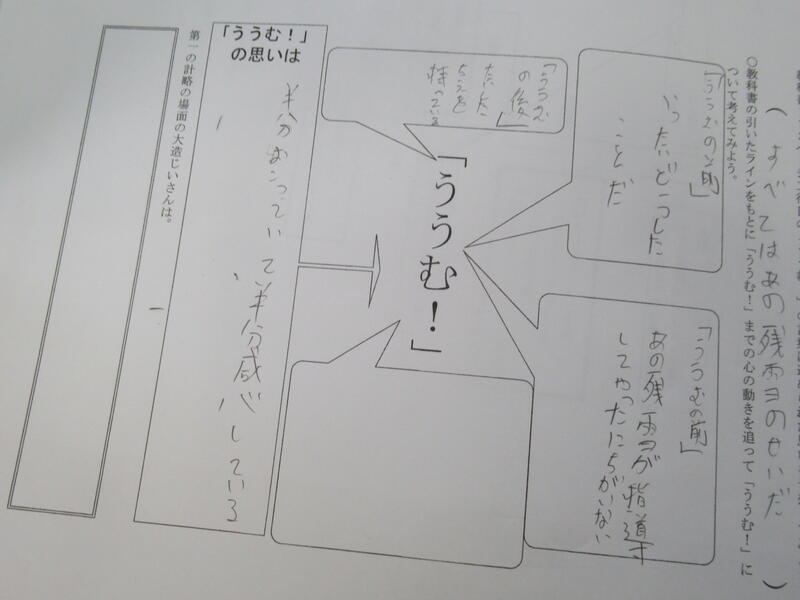 (すべてはあの残雪のせいだ)
○教科書の引いたラインをもとに「ううむ！」までの心の動きを追って「ううむ！」に
ついて考えてみよう。
「ううむの前」
いったいどうした
ことだ
「ううむの前」
あの残雪が指導を
してやったにちがいない
「ううむ
の後」
たいした
ちえを
持っている
「ううむ！」
「ううむ！」
の思いは
半分おこっていて半分感心している
第一の計略の場面の大造じいさんは。